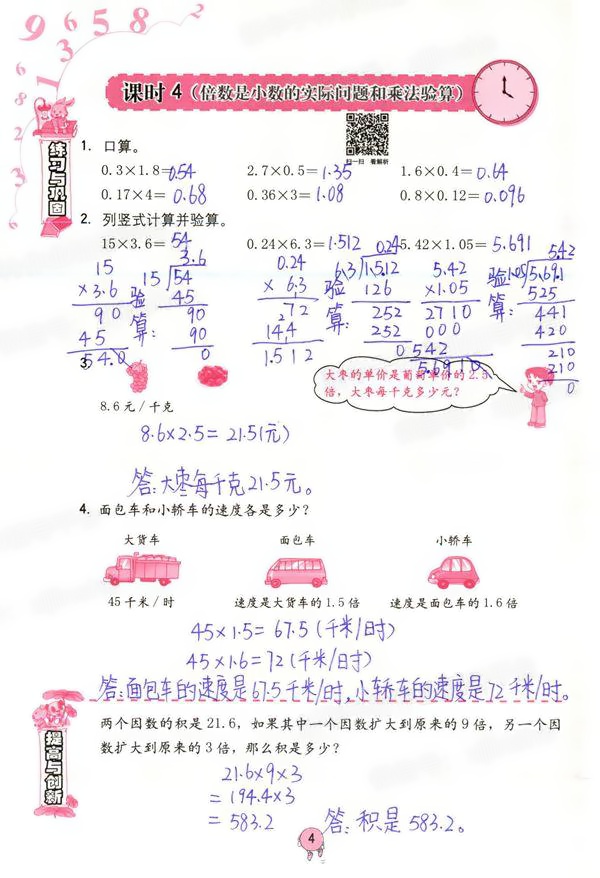 9 6 5 8 2
课时 4（倍数是小数的实际问题和乘法验算）
扫一扫 看解析
练习与巩固
1. 口算。
0.3×1.8=0.54 2.7×0.5=1.35 1.6×0.4=0.64
0.17×4=0.68 0.36×3=1.08 0.8×0.12=0.096
2. 列竖式计算并验算。
15×3.6=54 0.24×6.3=1.512 5.42×1.05=5.691
15
×3.6
90
45
54.0
验算:
3.6
15 54
45
90
90
0
0.24
×6.3
72
144
1.512
验算:
0.24
6.3 1.512
126
252
252
0
5.42
×1.05
2710
000
542
5.6910
验算:
5.42
1.05 5.691
525
441
420
210
210
0
3.
大枣的单价是葡萄单价的2.5
倍，大枣每千克多少元？
8.6元/千克
8.6×2.5=21.5(元)
答:大枣每千克21.5元。
4. 面包车和小轿车的速度各是多少？
大货车 面包车 小轿车
45千米/时 速度是大货车的1.5倍 速度是面包车的1.6倍
45×1.5=67.5(千米/时)
45×1.6=72(千米/时)
答:面包车的速度是67.5千米/时,小轿车的速度是72千米/时。
提高与创新
两个因数的积是21.6，如果其中一个因数扩大到原来的9倍，另一个因
数扩大到原来的3倍，那么积是多少？
21.6×9×3
=194.4×3
=583.2 答:积是583.2。
4